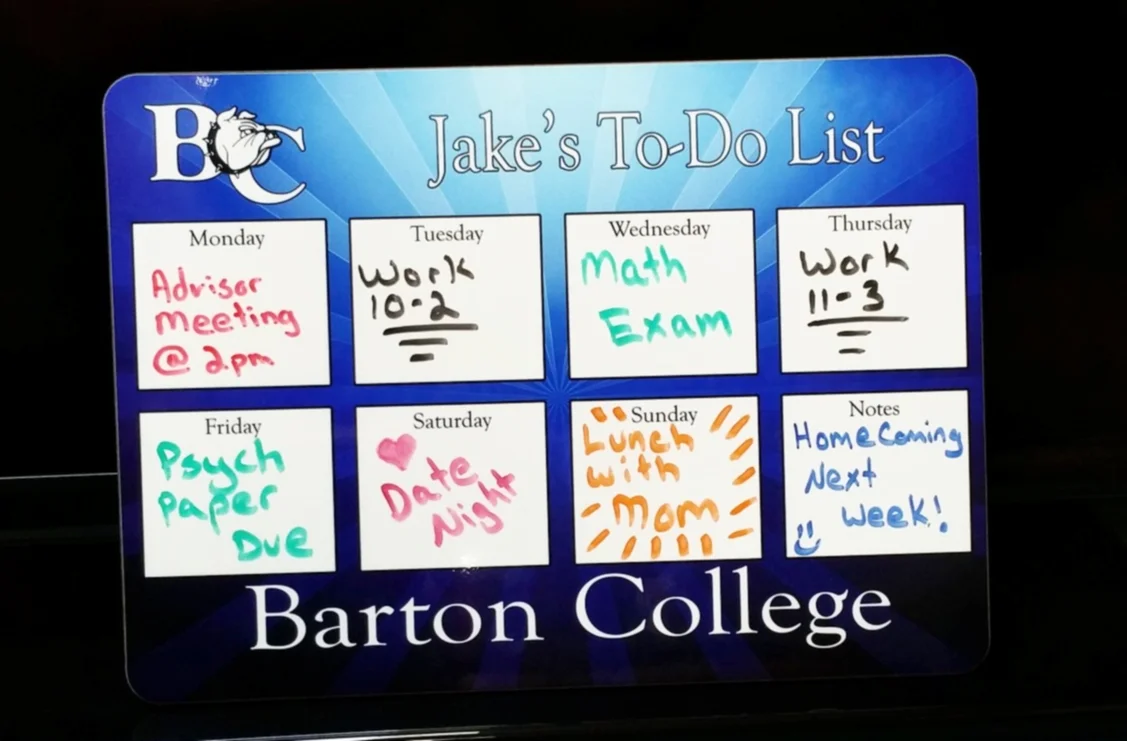 BC
Jake's To-Do List
Monday
Advisor
Meeting
@ 2pm
Tuesday
Work
10-2
Wednesday
Math
Exam
Thursday
Work
11-3
Friday
Psych
Paper
Due
Saturday
Date
Night
Sunday
Lunch
with
Mom
Notes
HomeComing
Next
week!
Barton College